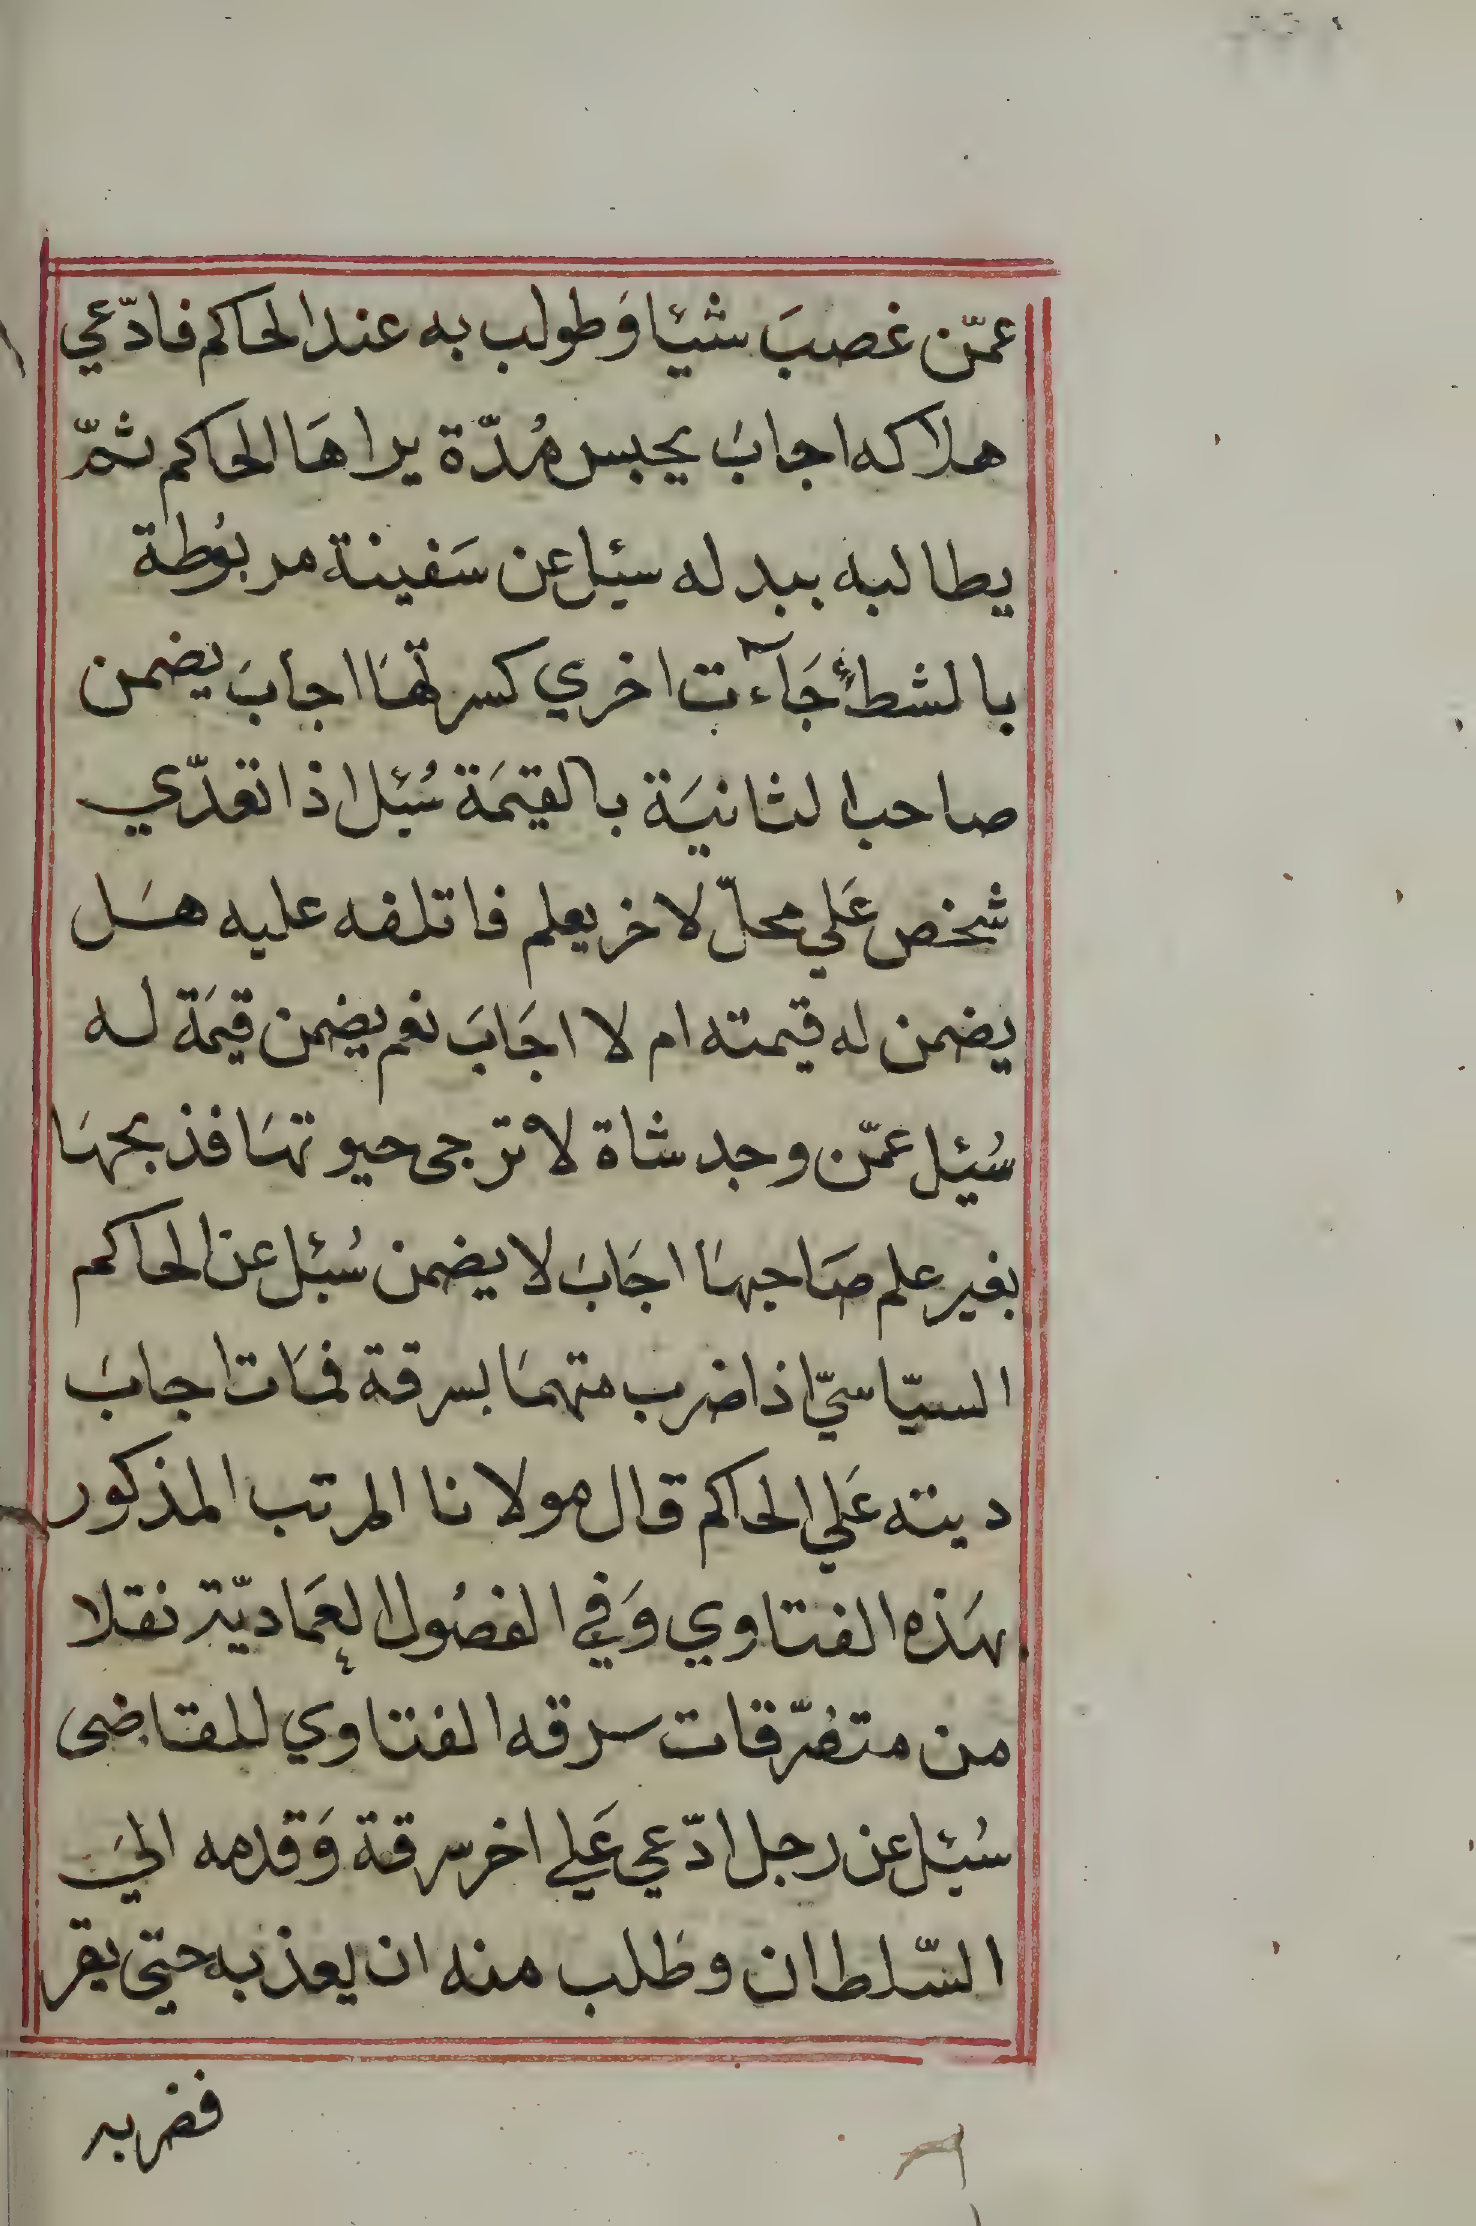 عمّن غصبَ شيئا وَطولب به عند الحاكم فادّعي
هلاكه اجابَ يحبس مُدّة يراهَا الحاكم ثمّ
يطالبه ببدله سئل عن سَفينة مربوُطة
بالشط جَآءت اخري كسرتهَا اجابَ يضمن
صاحب الثانيَة بالقيَمَة سُئل اذا تعدّي
شخص عَلي محلّ لاخر يعلم فاتلفه عليه هَل
يضمن له قيمته ام لا اجَابَ نعم يضمن قيمَة له
سُئل عمّن وجد شاة لا ترجى حيوتهَا فذبحهَا
بغير علم صَاحبهَا اجَابَ لا يضمن سُئل عن الحاكم
السيّاسيّ اذا ضرب متهمَا بسرقة فمَات اجابَ
ديته عَلي الحاكم قال مولانا المرتب المذكور
لهَذه الفتاوي وَفي الفصُول العمَاديّة نقلا
من متفرّقات سرقه الفتاوي للقاضى
سُئل عن رجل ادّعي عَلي اخر سرقة وَقدمه اليَ
السّلطان وطَلب منه ان يعذبه حتي يقر
فضربه